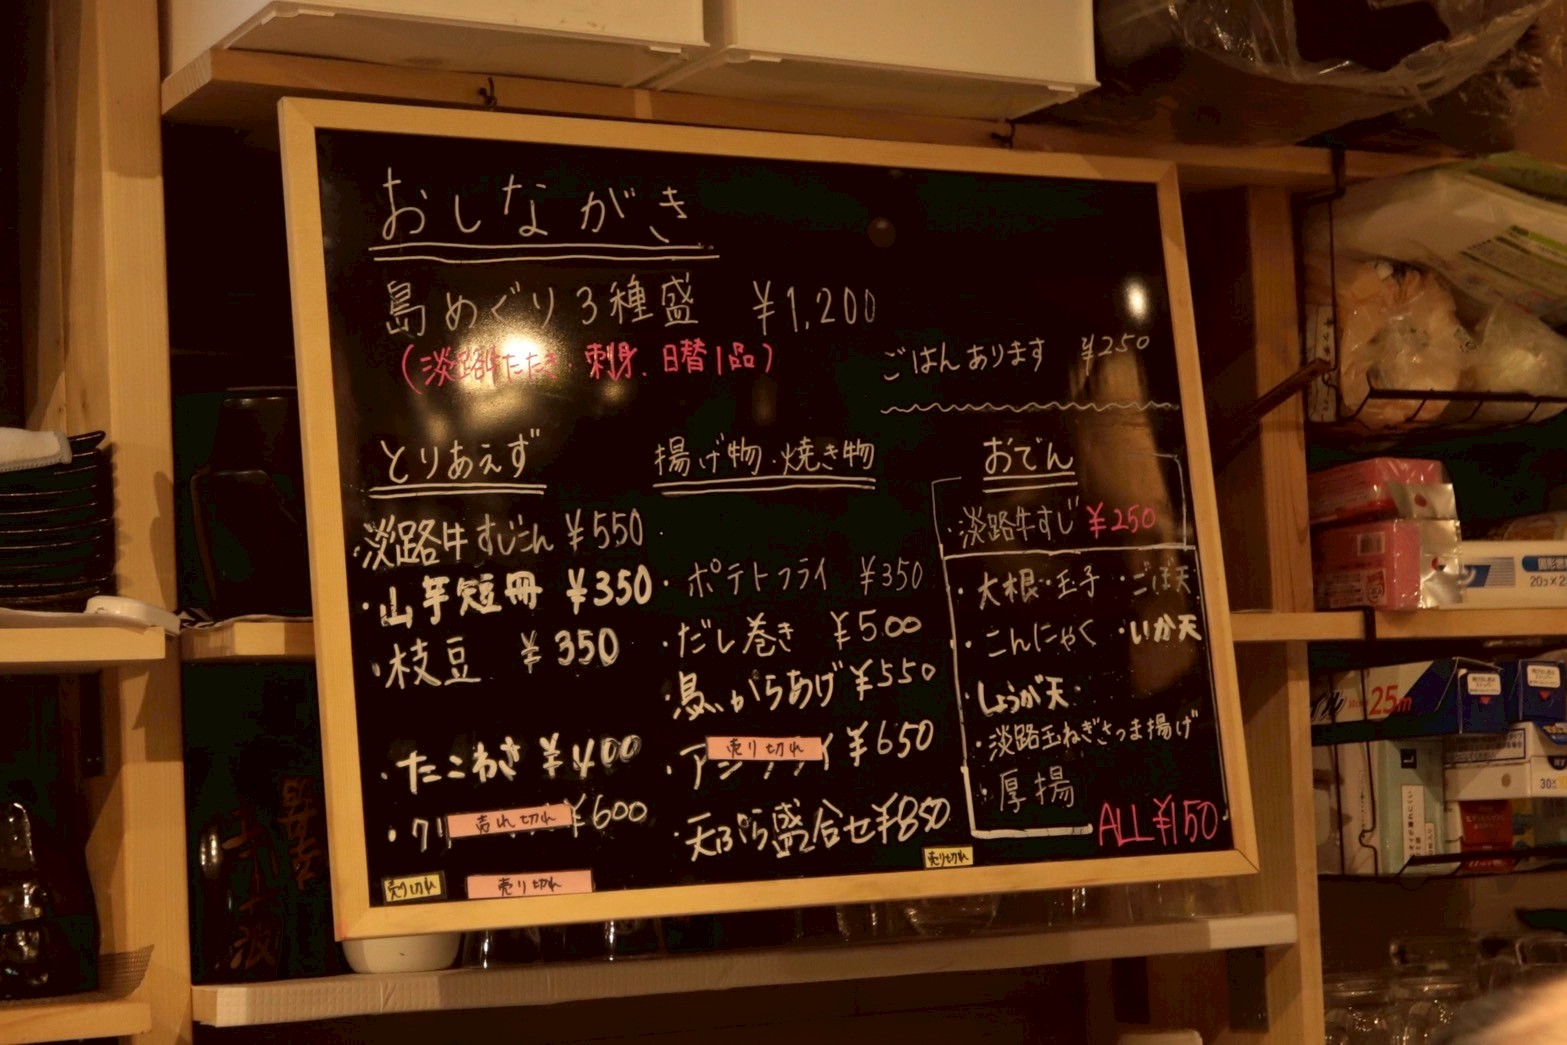 おしながき
島めぐり3種盛 ¥1,200
(淡路牛たたき 刺身、日替1品)
ごはんあります ¥250
とりあえず
淡路牛すじこん ¥550
・山芋短冊 ¥350
・枝豆 ¥350
・たこわさ ¥400
・クリ 売れ切れ ¥600
売り切れ
売り切れ
揚げ物・焼き物
・ポテトフライ ¥350
・だし巻き ¥500
・鳥からあげ ¥550
・アジフライ 売り切れ ¥650
・天ぷら盛合せ ¥880
売り切れ
おでん
・淡路牛すじ ¥250
・大根・玉子・ごぼ天
・こんにゃく ・いか天
・しょうが天
・淡路玉ねぎさつま揚げ
・厚揚
ALL ¥150
25m